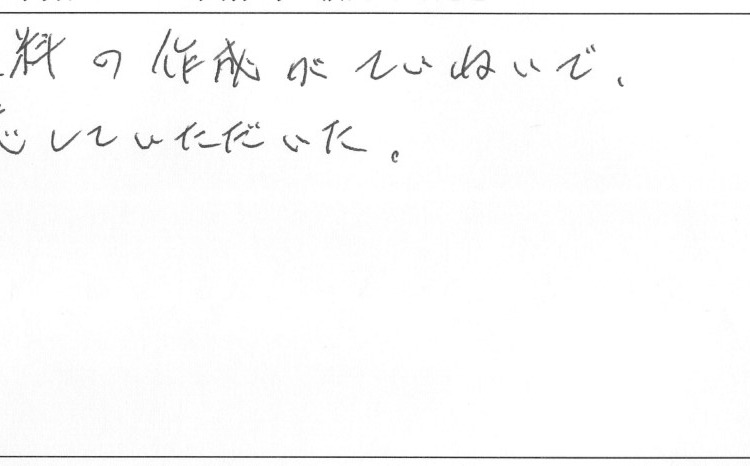 料の作成がていねいで、
応していただいた。